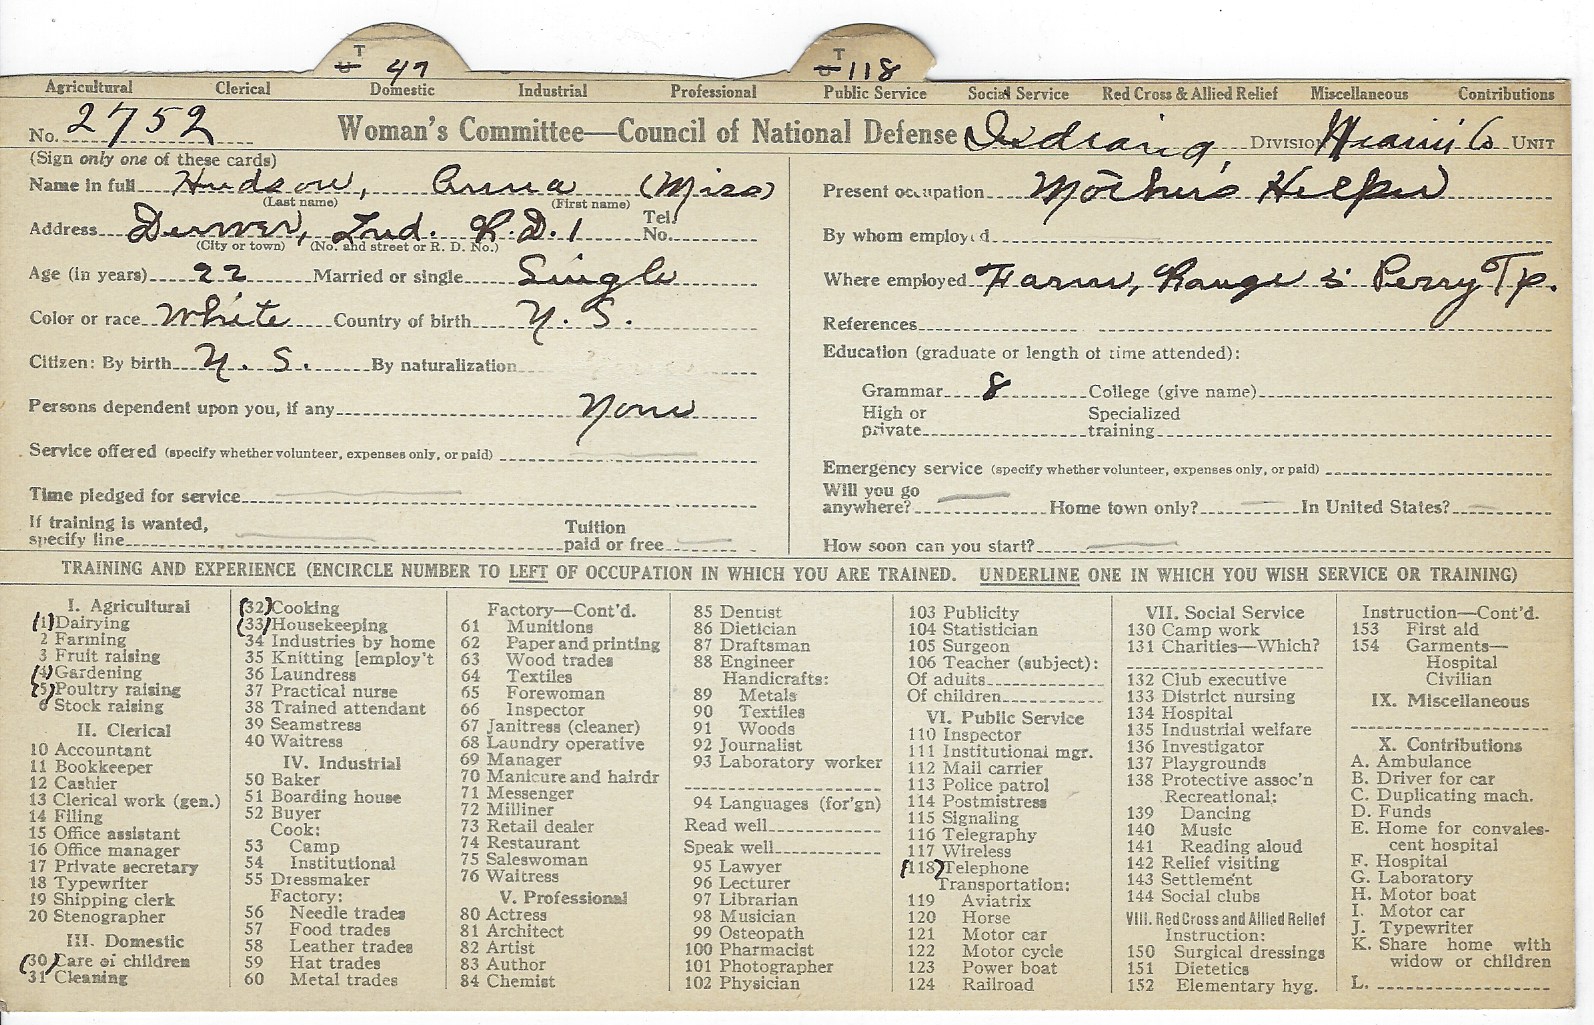 T 47 T 118
Agricultural Clerical Domestic Industrial Professional Public Service Social Service Red Cross & Allied Relief Miscellaneous Contributions
No. 2752 Woman's Committee—Council of National Defense Indiana, Division Miami Co Unit
(Sign only one of these cards)
Name in full Hudson, Anna (Miss)
(Last name) (First name)
Address Denver, Ind. R.D. 1 Tel. No.
(City or town) (No. and street or R. D. No.)
Age (in years) 22 Married or single Single
Color or race White Country of birth U. S.
Citizen: By birth U. S. By naturalization
Persons dependent upon you, if any None
Service offered (specify whether volunteer, expenses only, or paid)
Time pledged for service
If training is wanted, specify line Tuition paid or free
Present occupation Mother's Helper
By whom employed
Where employed Farm, Range 3 Perry Tp.
References
Education (graduate or length of time attended):
Grammar 8 College (give name)
High or private Specialized training
Emergency service (specify whether volunteer, expenses only, or paid)
Will you go anywhere? Home town only? In United States?
How soon can you start?
TRAINING AND EXPERIENCE (ENCIRCLE NUMBER TO LEFT OF OCCUPATION IN WHICH YOU ARE TRAINED. UNDERLINE ONE IN WHICH YOU WISH SERVICE OR TRAINING)
I. Agricultural
(1) Dairying
2 Farming
3 Fruit raising
(4) Gardening
(5) Poultry raising
6 Stock raising
II. Clerical
10 Accountant
11 Bookkeeper
12 Cashier
13 Clerical work (gen.)
14 Filing
15 Office assistant
16 Office manager
17 Private secretary
18 Typewriter
19 Shipping clerk
20 Stenographer
III. Domestic
(30) Care of children
31 Cleaning
(32) Cooking
(33) Housekeeping
34 Industries by home
35 Knitting [employ't
36 Laundress
37 Practical nurse
38 Trained attendant
39 Seamstress
40 Waitress
IV. Industrial
50 Baker
51 Boarding house
52 Buyer
Cook:
53 Camp
54 Institutional
55 Dressmaker
Factory:
56 Needle trades
57 Food trades
58 Leather trades
59 Hat trades
60 Metal trades
Factory—Cont'd.
61 Munitions
62 Paper and printing
63 Wood trades
64 Textiles
65 Forewoman
66 Inspector
67 Janitress (cleaner)
68 Laundry operative
69 Manager
70 Manicure and hairdr
71 Messenger
72 Milliner
73 Retail dealer
74 Restaurant
75 Saleswoman
76 Waitress
V. Professional
80 Actress
81 Architect
82 Artist
83 Author
84 Chemist
85 Dentist
86 Dietician
87 Draftsman
88 Engineer
Handicrafts:
89 Metals
90 Textiles
91 Woods
92 Journalist
93 Laboratory worker
94 Languages (for'gn)
Read well
Speak well
95 Lawyer
96 Lecturer
97 Librarian
98 Musician
99 Osteopath
100 Pharmacist
101 Photographer
102 Physician
103 Publicity
104 Statistician
105 Surgeon
106 Teacher (subject):
Of adults
Of children
VI. Public Service
110 Inspector
111 Institutional mgr.
112 Mail carrier
113 Police patrol
114 Postmistress
115 Signaling
116 Telegraphy
117 Wireless
(118) Telephone
Transportation:
119 Aviatrix
120 Horse
121 Motor car
122 Motor cycle
123 Power boat
124 Railroad
VII. Social Service
130 Camp work
131 Charities—Which?
132 Club executive
133 District nursing
134 Hospital
135 Industrial welfare
136 Investigator
137 Playgrounds
138 Protective assoc'n
Recreational:
139 Dancing
140 Music
141 Reading aloud
142 Relief visiting
143 Settlement
144 Social clubs
VIII. Red Cross and Allied Relief
Instruction:
150 Surgical dressings
151 Dietetics
152 Elementary hyg.
Instruction—Cont'd.
153 First aid
154 Garments—
Hospital
Civilian
IX. Miscellaneous
X. Contributions
A. Ambulance
B. Driver for car
C. Duplicating mach.
D. Funds
E. Home for convales-
cent hospital
F. Hospital
G. Laboratory
H. Motor boat
I. Motor car
J. Typewriter
K. Share home with
widow or children
L.